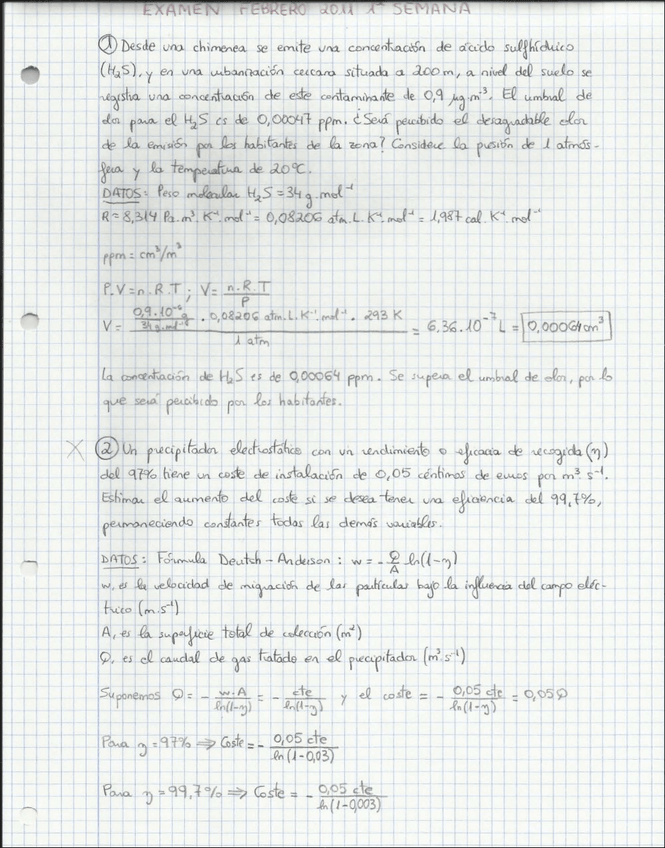 EXAMEN FEBRERO 2011 1ª SEMANA
① Desde una chimenea se emite una concentración de ácido sulfhídrico
(H₂S), y en una urbanización cercana situada a 200m, a nivel del suelo se
registra una concentración de este contaminante de 0,9 μg.m⁻³. El umbral de
olor para el H₂S es de 0,00047 ppm. ¿Será percibido el desagradable olor
de la emisión por los habitantes de la zona? Considere la presión de 1 atmós-
fera y la temperatura de 20ºC.
DATOS: Peso molecular H₂S = 34 g.mol⁻¹
R = 8,314 Pa.m³.K⁻¹.mol⁻¹ = 0,08206 atm.L.K⁻¹.mol⁻¹ = 1,987 cal.K⁻¹.mol⁻¹
ppm = cm³/m³
P.V = n.R.T ; V = n.R.T / P
V = (0,9.10⁻⁶g / 34g.mol⁻¹ . 0,08206 atm.L.K⁻¹.mol⁻¹ . 293 K) / 1 atm = 6,36.10⁻⁷ L = 0,00064cm³
La concentración de H₂S es de 0,00064 ppm. Se supera el umbral de olor, por lo
que será percibido por los habitantes.
X ② Un precipitador electrostático con un rendimiento o eficacia de recogida (η)
del 97% tiene un coste de instalación de 0,05 céntimos de euros por m³ s⁻¹.
Estimar el aumento del coste si se desea tener una eficiencia del 99,7%,
permaneciendo constantes todas las demás variables.
DATOS: Fórmula Deutsh-Anderson : w = - Q/A ln(1-η)
w, es la velocidad de migración de las partículas bajo la influencia del campo eléc-
trico (m.s⁻¹)
A, es la superficie total de colección (m²)
Q, es el caudal de gas tratado en el precipitador (m³.s⁻¹)
Suponemos Q = - w.A / ln(1-η) = - cte / ln(1-η) y el coste = - 0,05 cte / ln(1-η) = 0,05Q
Para η = 97% ⇒ Coste = - 0,05 cte / ln(1-0,03)
Para η = 99,7% ⇒ Coste = - 0,05 cte / ln(1-0,003)